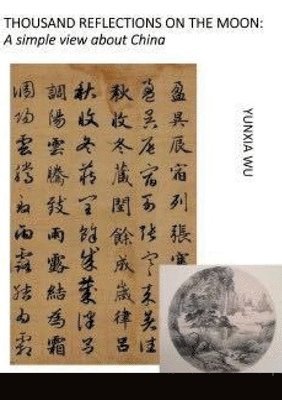 THOUSAND REFLECTIONS ON THE MOON:
A simple view about China
YUNXIA WU
盈昃辰宿列張寒
盈昃辰宿列張寒來暑往
秋收冬藏閏餘成歲律呂
秋收冬藏閏餘成歲律呂
調陽雲騰致雨露結為霜
調陽雲騰致雨露結為霜